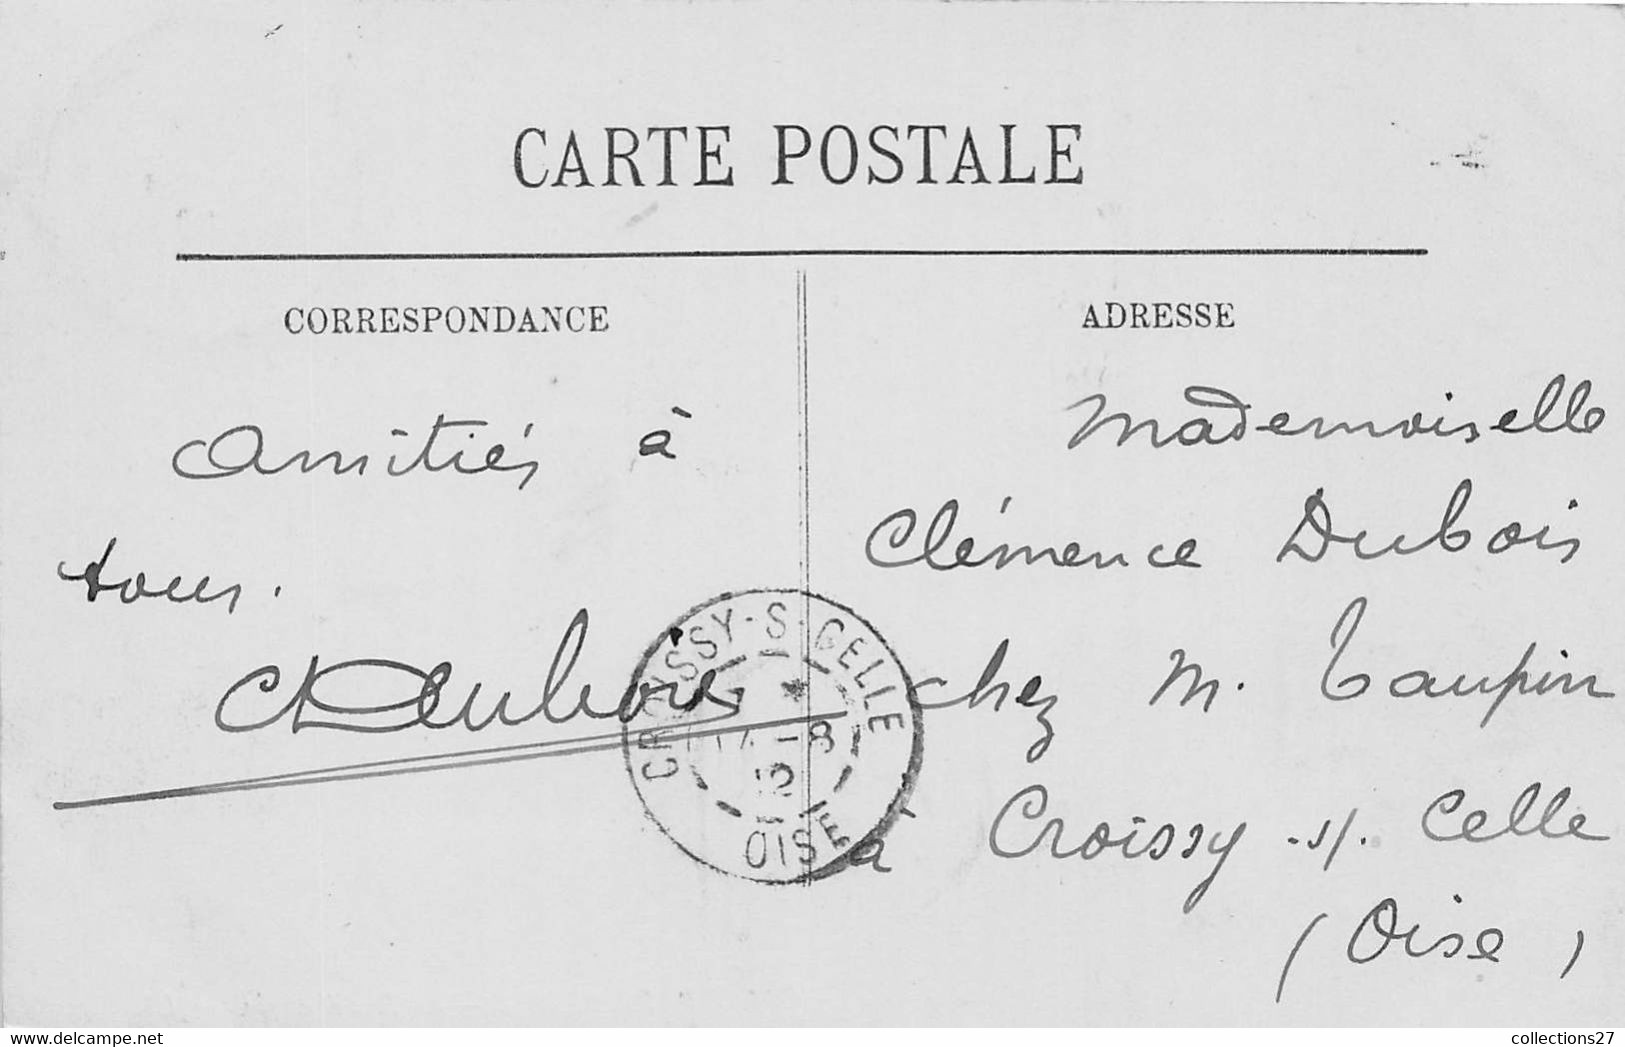 CARTE POSTALE
CORRESPONDANCE
Amitiés à
tous.
Dubois
ADRESSE
Mademoiselle
Clémence Dubois
chez M. Taupin
à Croissy-s/. Celle
(Oise)
CROISSY-S-CELLE
-8
OISE
collections27